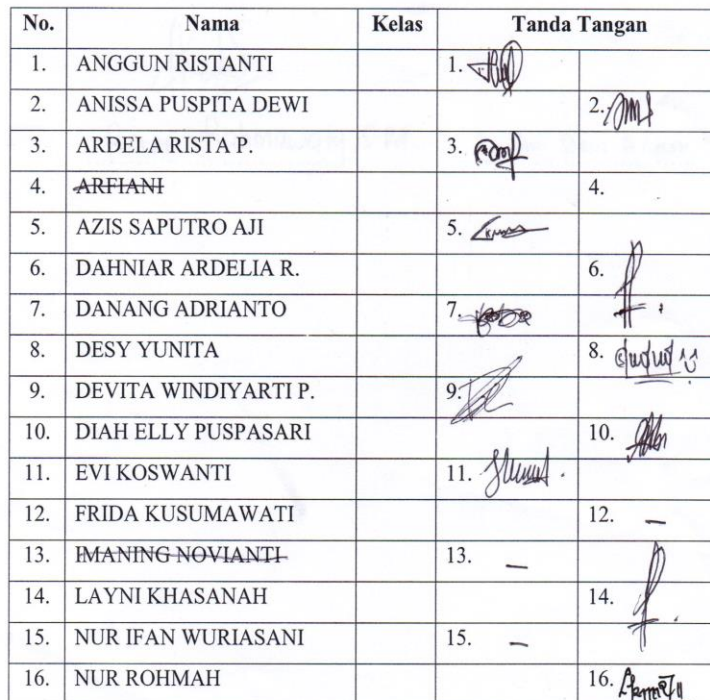 No. Nama Kelas Tanda Tangan
1. ANGGUN RISTANTI 1.
2. ANISSA PUSPITA DEWI 2.
3. ARDELA RISTA P. 3.
4. ARFIANI 4.
5. AZIS SAPUTRO AJI 5.
6. DAHNIAR ARDELIA R. 6.
7. DANANG ADRIANTO 7.
8. DESY YUNITA 8.
9. DEVITA WINDIYARTI P. 9.
10. DIAH ELLY PUSPASARI 10.
11. EVI KOSWANTI 11.
12. FRIDA KUSUMAWATI 12. –
13. IMANING NOVIANTI 13. –
14. LAYNI KHASANAH 14.
15. NUR IFAN WURIASANI 15. –
16. NUR ROHMAH 16.